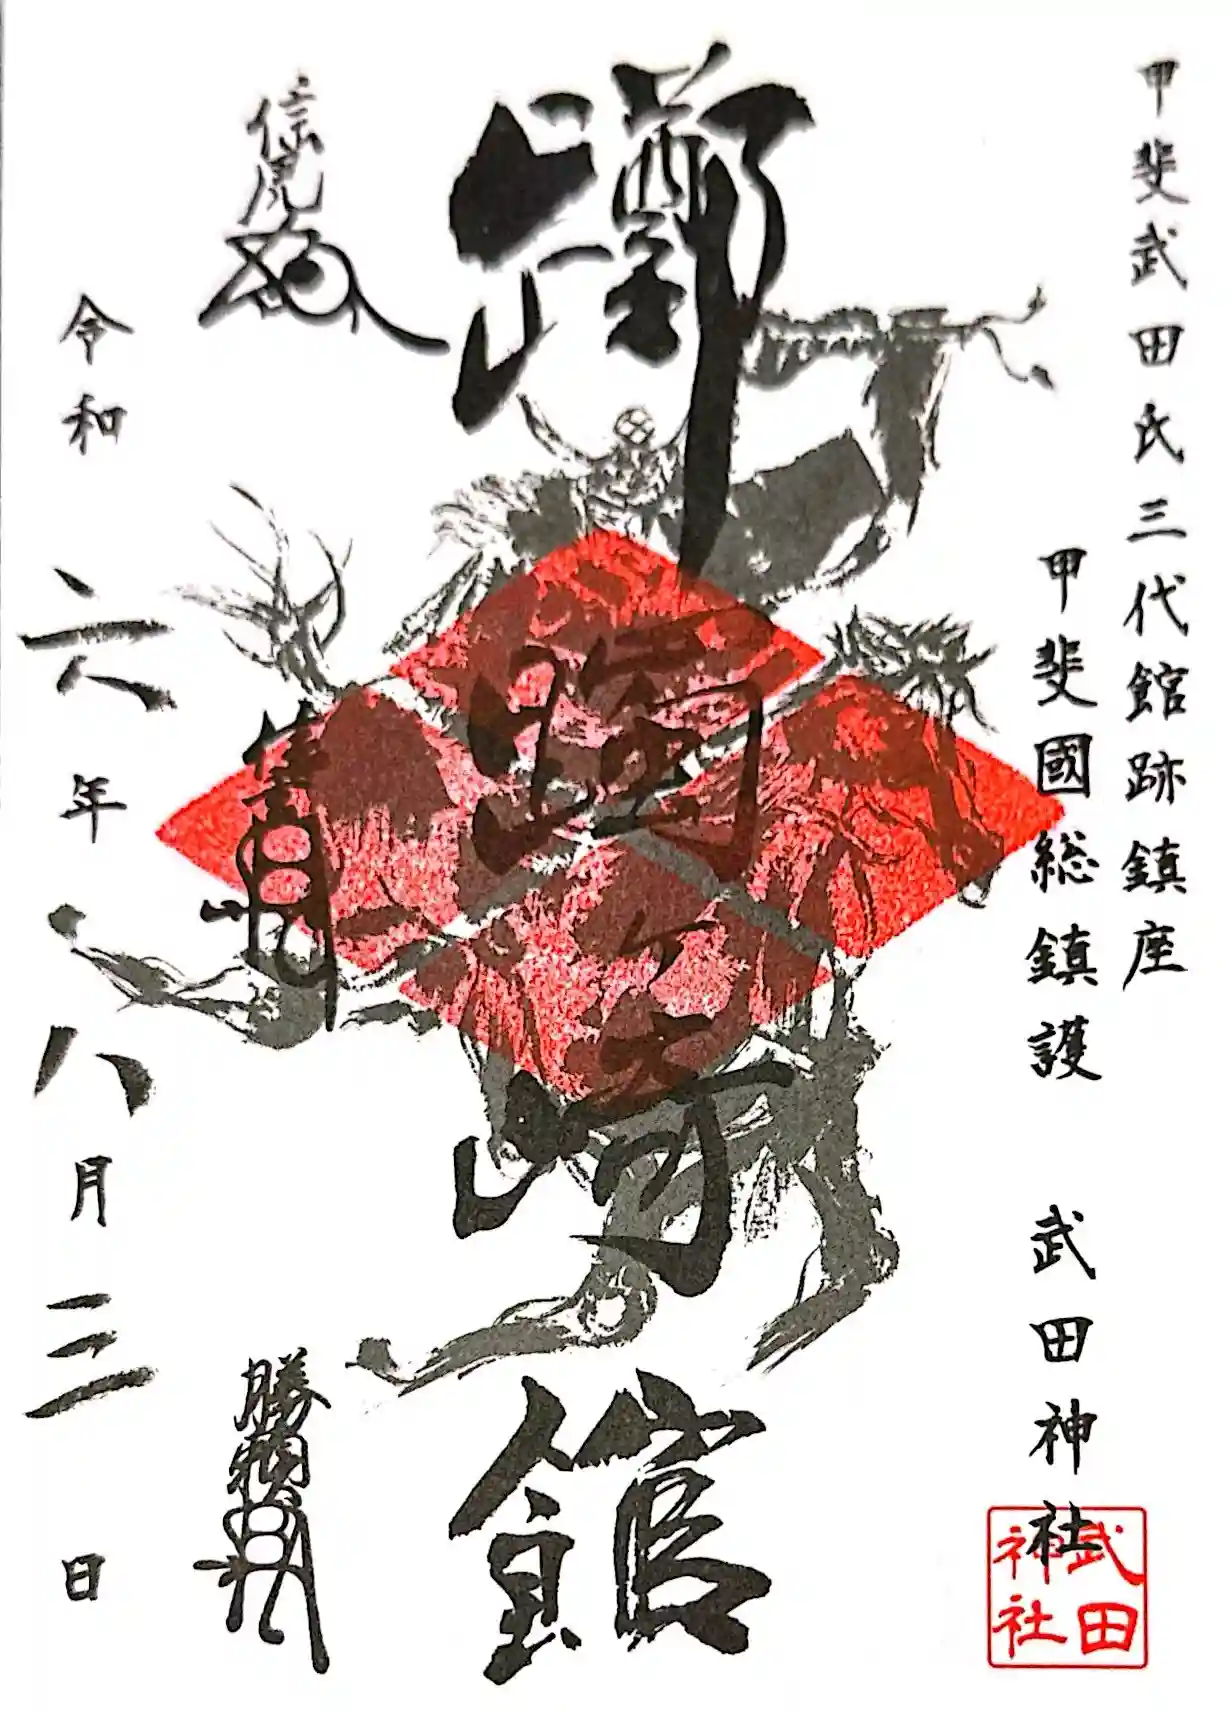 甲斐武田氏三代館跡鎮座
甲斐國総鎮護 武田神社
武田
神社
躑躅ヶ崎館
信虎
信玄
勝頼
令和六年八月三日